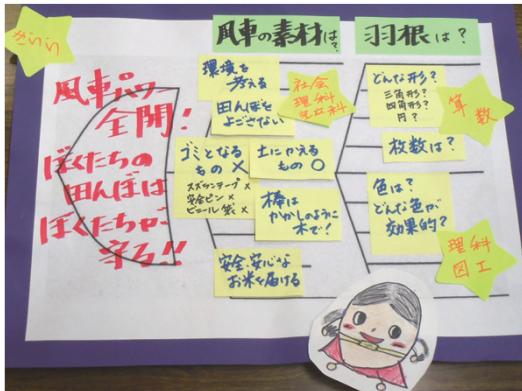 きらり
風車の素材は?
羽根は?
風車パワー
全開!
ぼくたちの
田んぼは
ぼくたちが
守る!!
環境を
考える
田んぼを
よごさない
社会
理科
ゴミとなる
もの×
スズランテープ×
安全ピン×
ビニール袋×
土にかえる
もの○
棒は
かかしのように
木で!
安全、安心な
お米を届ける
どんな形?
三角形?
四角形?
円?
算数
枚数は?
色は?
どんな色が
効果的?
理科
図工